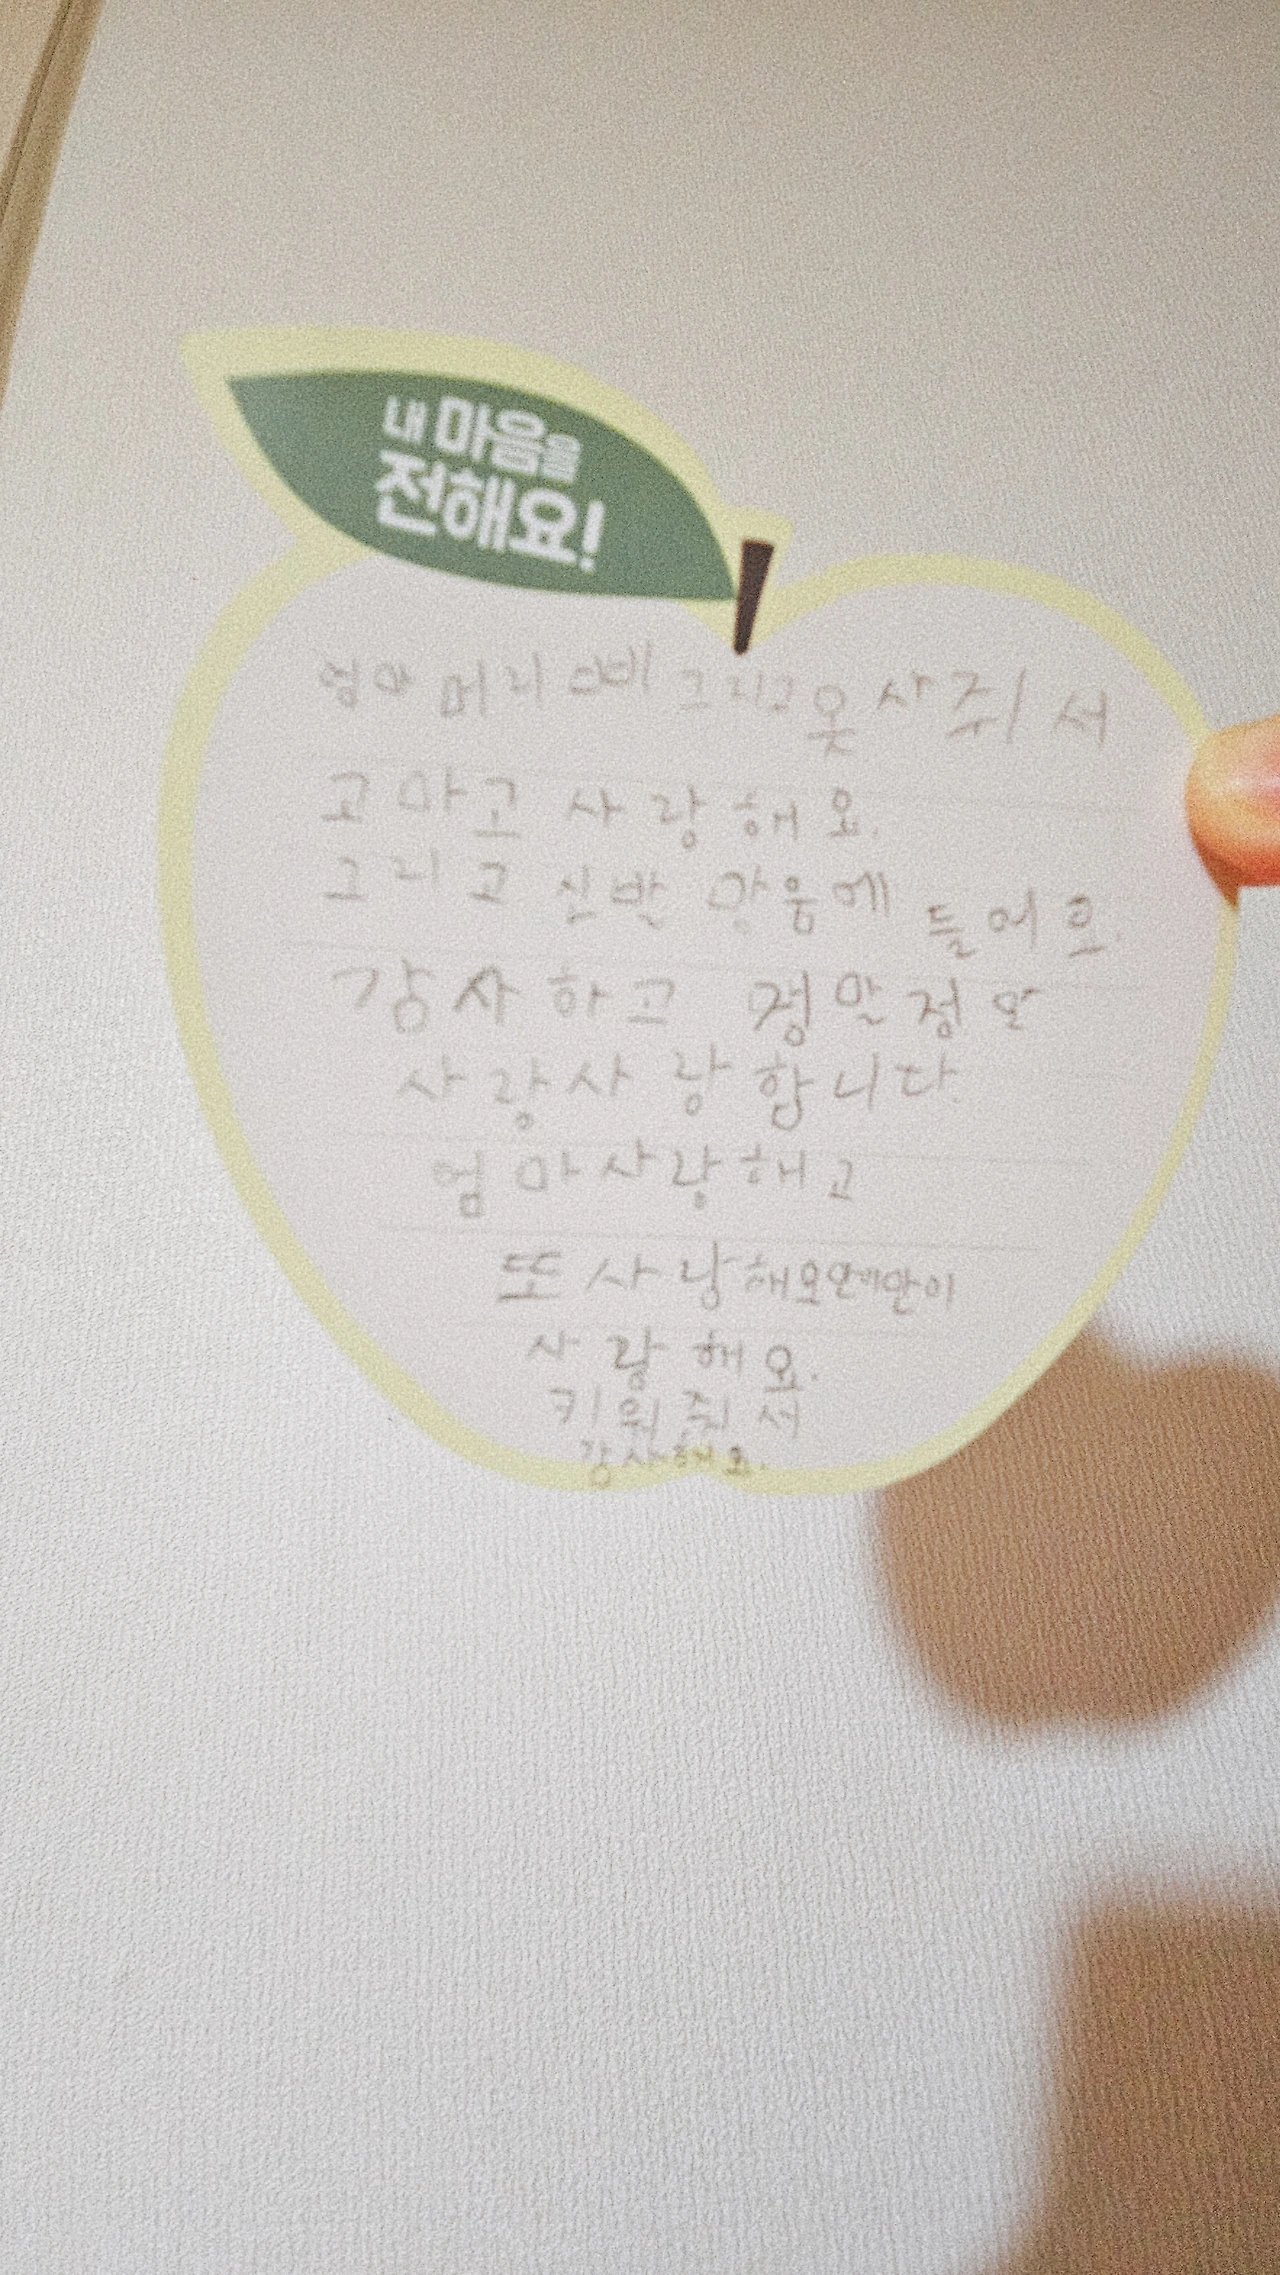 내 마음을
전해요!
엄마 머리 그리고 옷 사줘서
고마고 사랑해요.
그리고 신반 맘움에 들어요.
감사하고 정말정말
사랑사랑합니다.
엄마사랑해고
또 사랑해요
사랑해요.
키워줘서
감사해요.